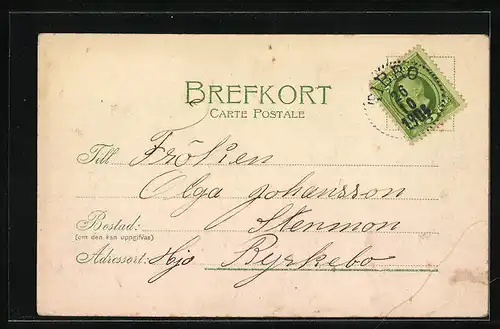 BREFKORT
CARTE POSTALE
Till Fröken
Olga Johansson
Bostad: Stenmon
(om den kan uppgifvas)
Adressort: Hjo Ryrkebo
26
190